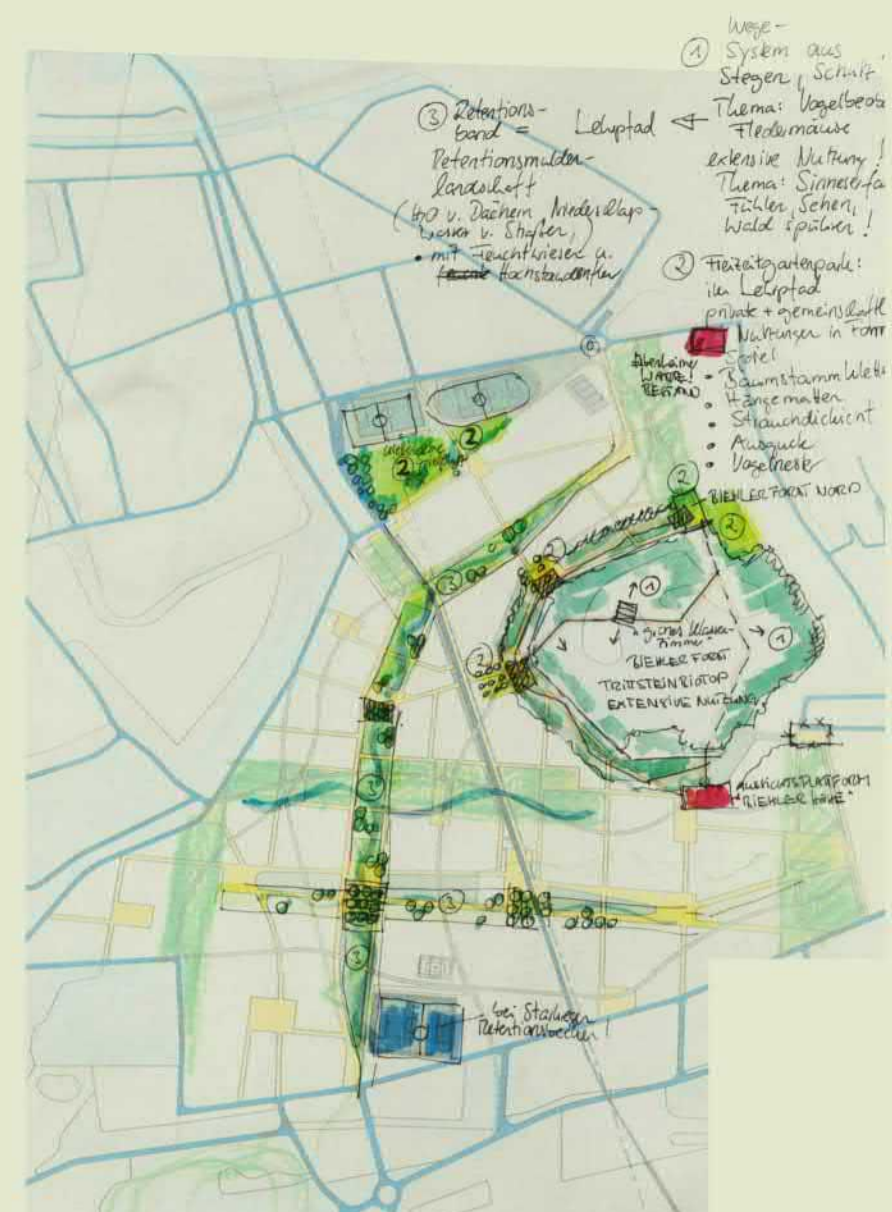 Wege-
① System aus
Stegen, Schutz
Thema: Vogelbeob
Fledermäuse
extensive Nutzung!
Thema: Sinneserfa
Fühlen, Sehen,
Wald spühren!
③ Retentions-
band = Lehrpfad
Retentionsmulden-
landschaft
(H2O v. Dächern, Niederschlags-
wasser v. Straßen,
• mit Feuchtwiesen u.
Hochstaudenfluren
② Freizeitgartenpark:
im Lehrpfad
private + gemeinschaftl
Nutzungen in Form
Spiel
• Baumstamm
• Hängematten
• Strauchdickicht
• Ausguck
• Vogelnester
WARTE!
BESTAND
2
2
②
BIEHLER FORST NORD
②
②
②
③
①
"grünes Wasser-
zimmer"
①
BIEHLER FORST
TRITTSTEINBIOTOP
EXTENSIVE NUTZUNG
AUSSICHTSPLATTFORM
"BIEHLER HÖHE"
③
③
③
bei Starkregen
Retentionsbecken!